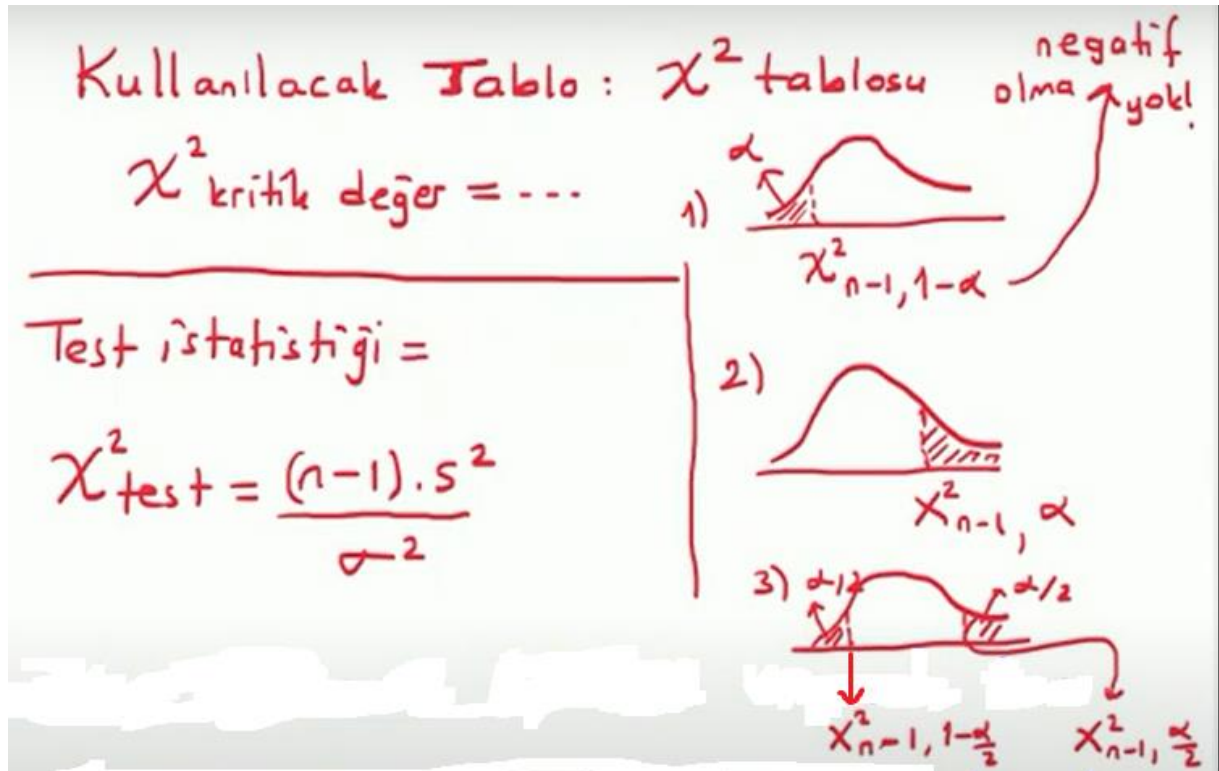 Kullanılacak Tablo: χ² tablosu
negatif
olma yok!
χ² kritik değer = ---
1)
α
χ²n-1, 1-α
Test istatistiği =
χ²test = (n-1).s²
σ²
2)
χ²n-1, α
3) α/2
α/2
χ²n-1, 1-α/2
χ²n-1, α/2